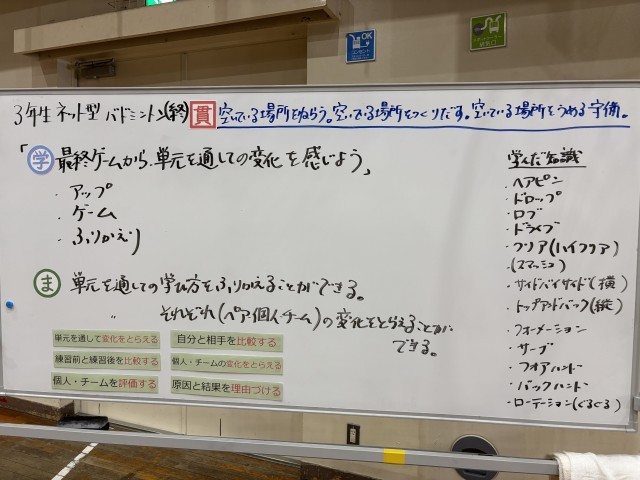 3年生 ネット型 バドミントン(終) 貫 空いている場所をねらう。空いている場所をつくりだす。空いている場所をうめる守備。
「学 最終ゲームから、単元を通しての変化を感じよう」
・アップ
・ゲーム
・ふりかえり
ま 単元を通しての学び方をふりかえることができる。
〃 それぞれ(ペア個人チーム)の変化をとらえることができる。
単元を通して変化をとらえる
自分と相手を比較する
練習前と練習後を比較する
個人・チームの変化をとらえる
個人・チームを評価する
原因と結果を理由づける
学んだ知識
・ヘアピン
・ドロップ
・ロブ
・ドライブ
・クリア(ハイクリア)
・(スマッシュ)
・サイドバイサイド(横)
・トップアドバック(縦)
・フォーメーション
・サーブ
・フォアハンド
・バックハンド
・ローテーション(ぐるぐる)
OK